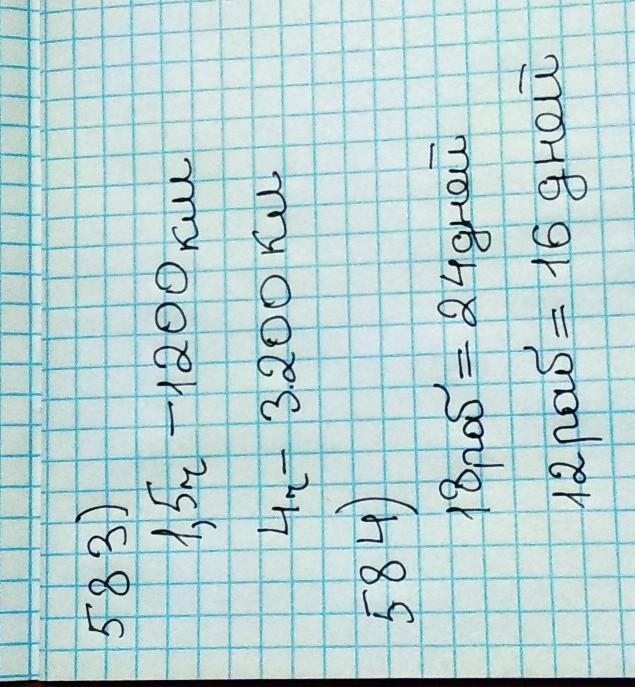 583)
1,5ч - 1200 км
4ч - 3200 км
584)
18 раб = 24 дней
12 раб = 16 дней